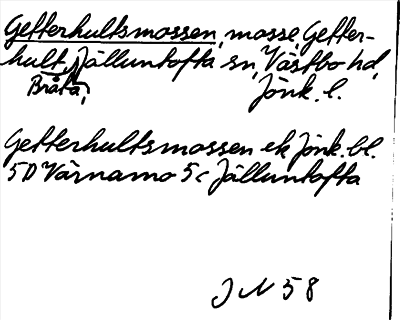 Getterhultsmossen, mosse, Getter-
hult, Jälluntofta sn, Västbo hd,
Bråta, Jönk. l.
Getterhultsmossen ek Jönk. bl.
5D Värnamo 5c Jälluntofta
J N 58